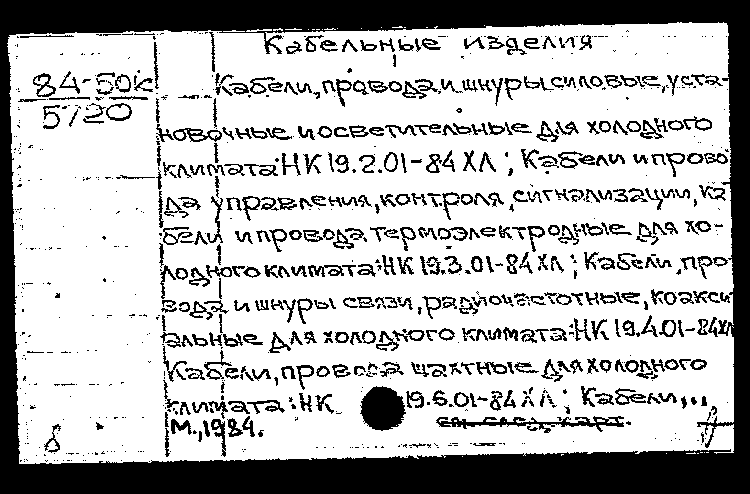 Кабельные изделия
84-50к
5720
Кабели, провода и шнуры силовые, уста-
новочные и осветительные для холодного
климата: НК 19.2.01-84 ХЛ; Кабели и прово
да управления, контроля, сигнализации, ка
бели и провода термоэлектродные для хо-
лодного климата: НК 19.3.01-84 ХЛ; Кабели, про
вода и шнуры связи, радиочастотные, коакси
альные для холодного климата: НК 19.4.01-84ХЛ
Кабели, провода шахтные для холодного
климата: НК 19.6.01-84 ХЛ; Кабели,...
М., 1984. см. след. карт.